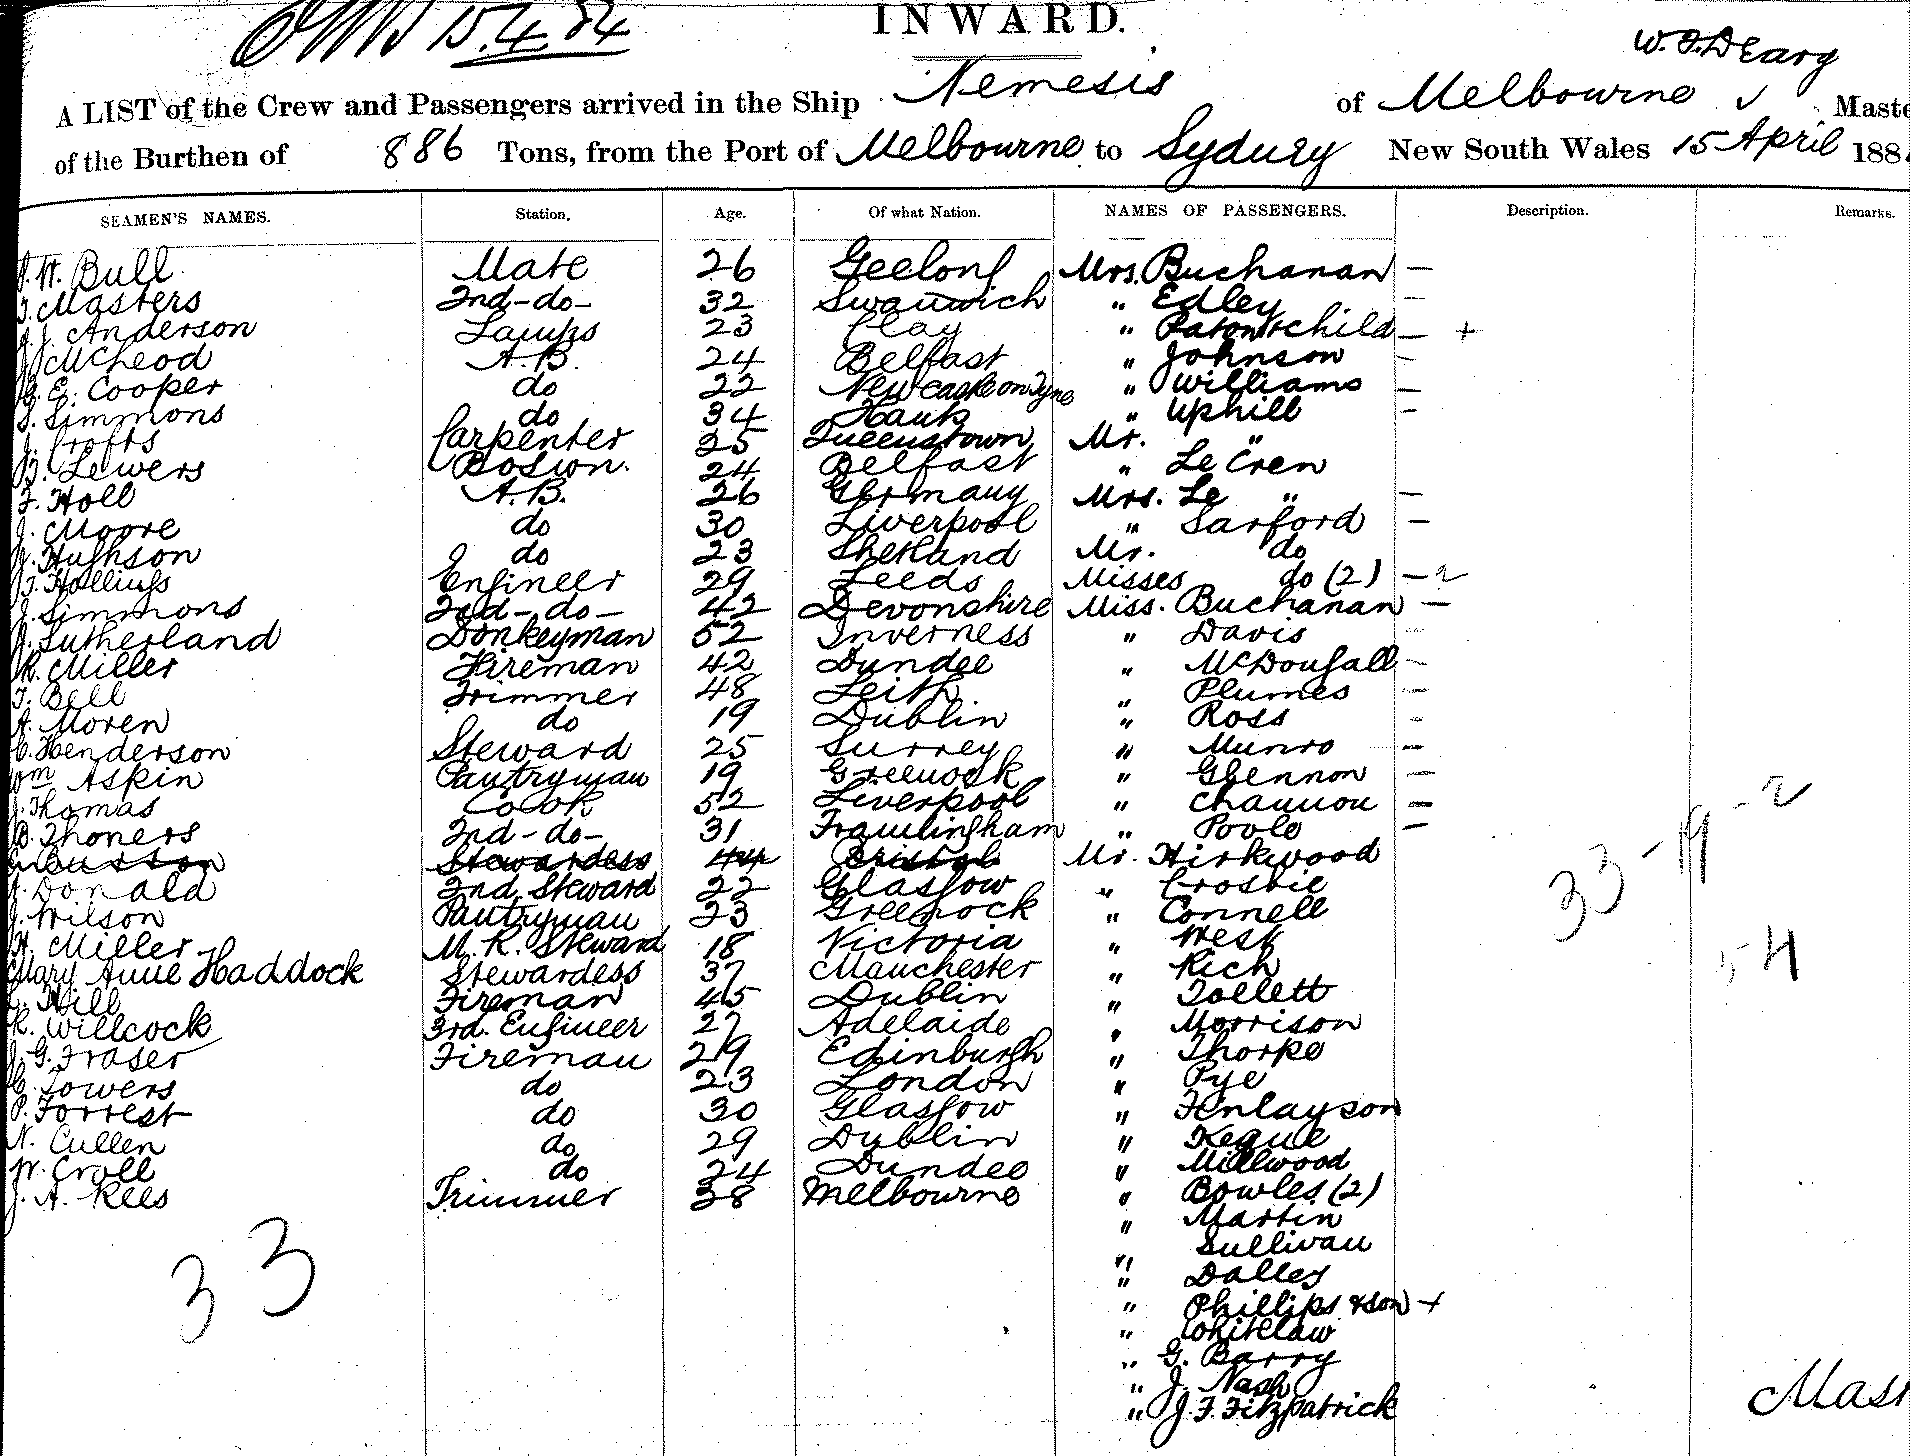 15.4.84
INWARD.
W. J. D Earg
A LIST of the Crew and Passengers arrived in the Ship Nemesis of Melbourne Maste
of the Burthen of 886 Tons, from the Port of Melbourne to Sydney New South Wales 15 April 188
SEAMEN'S NAMES. Station. Age. Of what Nation. NAMES OF PASSENGERS. Description. Remarks.
Bull Mate 26 Geelong Mrs. Buchanan —
Masters 2nd -do- 32 Swanwich " Edley —
J. Anderson Lamps 23 Clay " Paton & child — +
McLeod A.B. 24 Belfast " Johnson —
E. Cooper do 22 Newcastle on Tyne " Williams —
Simmons do 34 " Uphill —
J. Crofts Carpenter 25 Queenstown Mr. "
Lewers Boswn. 24 Belfast " Le Cren
F. Holl A.B. 26 Germany Mrs. Le " —
J. Moore do 30 Liverpool " Sarford —
Hughson do 23 Shetland Mr. do
Hollings Engineer 29 Leeds Misses do (2) — 2
J. Simmons 2nd -do- 42 Devonshire Miss. Buchanan —
Sutherland Donkeyman 52 Inverness " Davis —
R. Miller Fireman 42 Dundee " McDougall —
T. Bell Trimmer 48 Leith " Plumes —
A. Moren do 19 Dublin " Ross —
C. Henderson Steward 25 Surrey " Munro —
Wm Askin Pantryman 19 Greenock " Glennon —
J. Thomas Cook 52 Liverpool " Channon —
B. Thoners 2nd -do- 31 Framlingham " Poole —
Stewardess 44 Bristol Mr. Kirkwood
Donald 2nd Steward 22 Glasgow " Crosbie
J. Wilson Pantryman 23 Greenock " Connell
Miller M. R. Steward 18 Victoria " West
Mary Anne Haddock Stewardess 37 Manchester " Rich
Hill Fireman 45 Dublin " Tollett
R. Willcock 3rd. Engineer 27 Adelaide " Morrison
G. Fraser Fireman 29 Edinburgh " Thorpe
Towers do 23 London " Pye
P. Forrest do 30 Glasgow " Finlayson
N. Cullen do 29 Dublin " Keque
W. Croll do 24 Dundee " Millwood
J. A. Rees Trimmer 38 Melbourne " Bowles (2)
" Martin
" Sullivan
" Dalley
" Phillips & son +
" Whitelaw
" G. Barry
" J. Nash
" J. F. Fitzpatrick
33
33 - 19 - 2
54
Mast